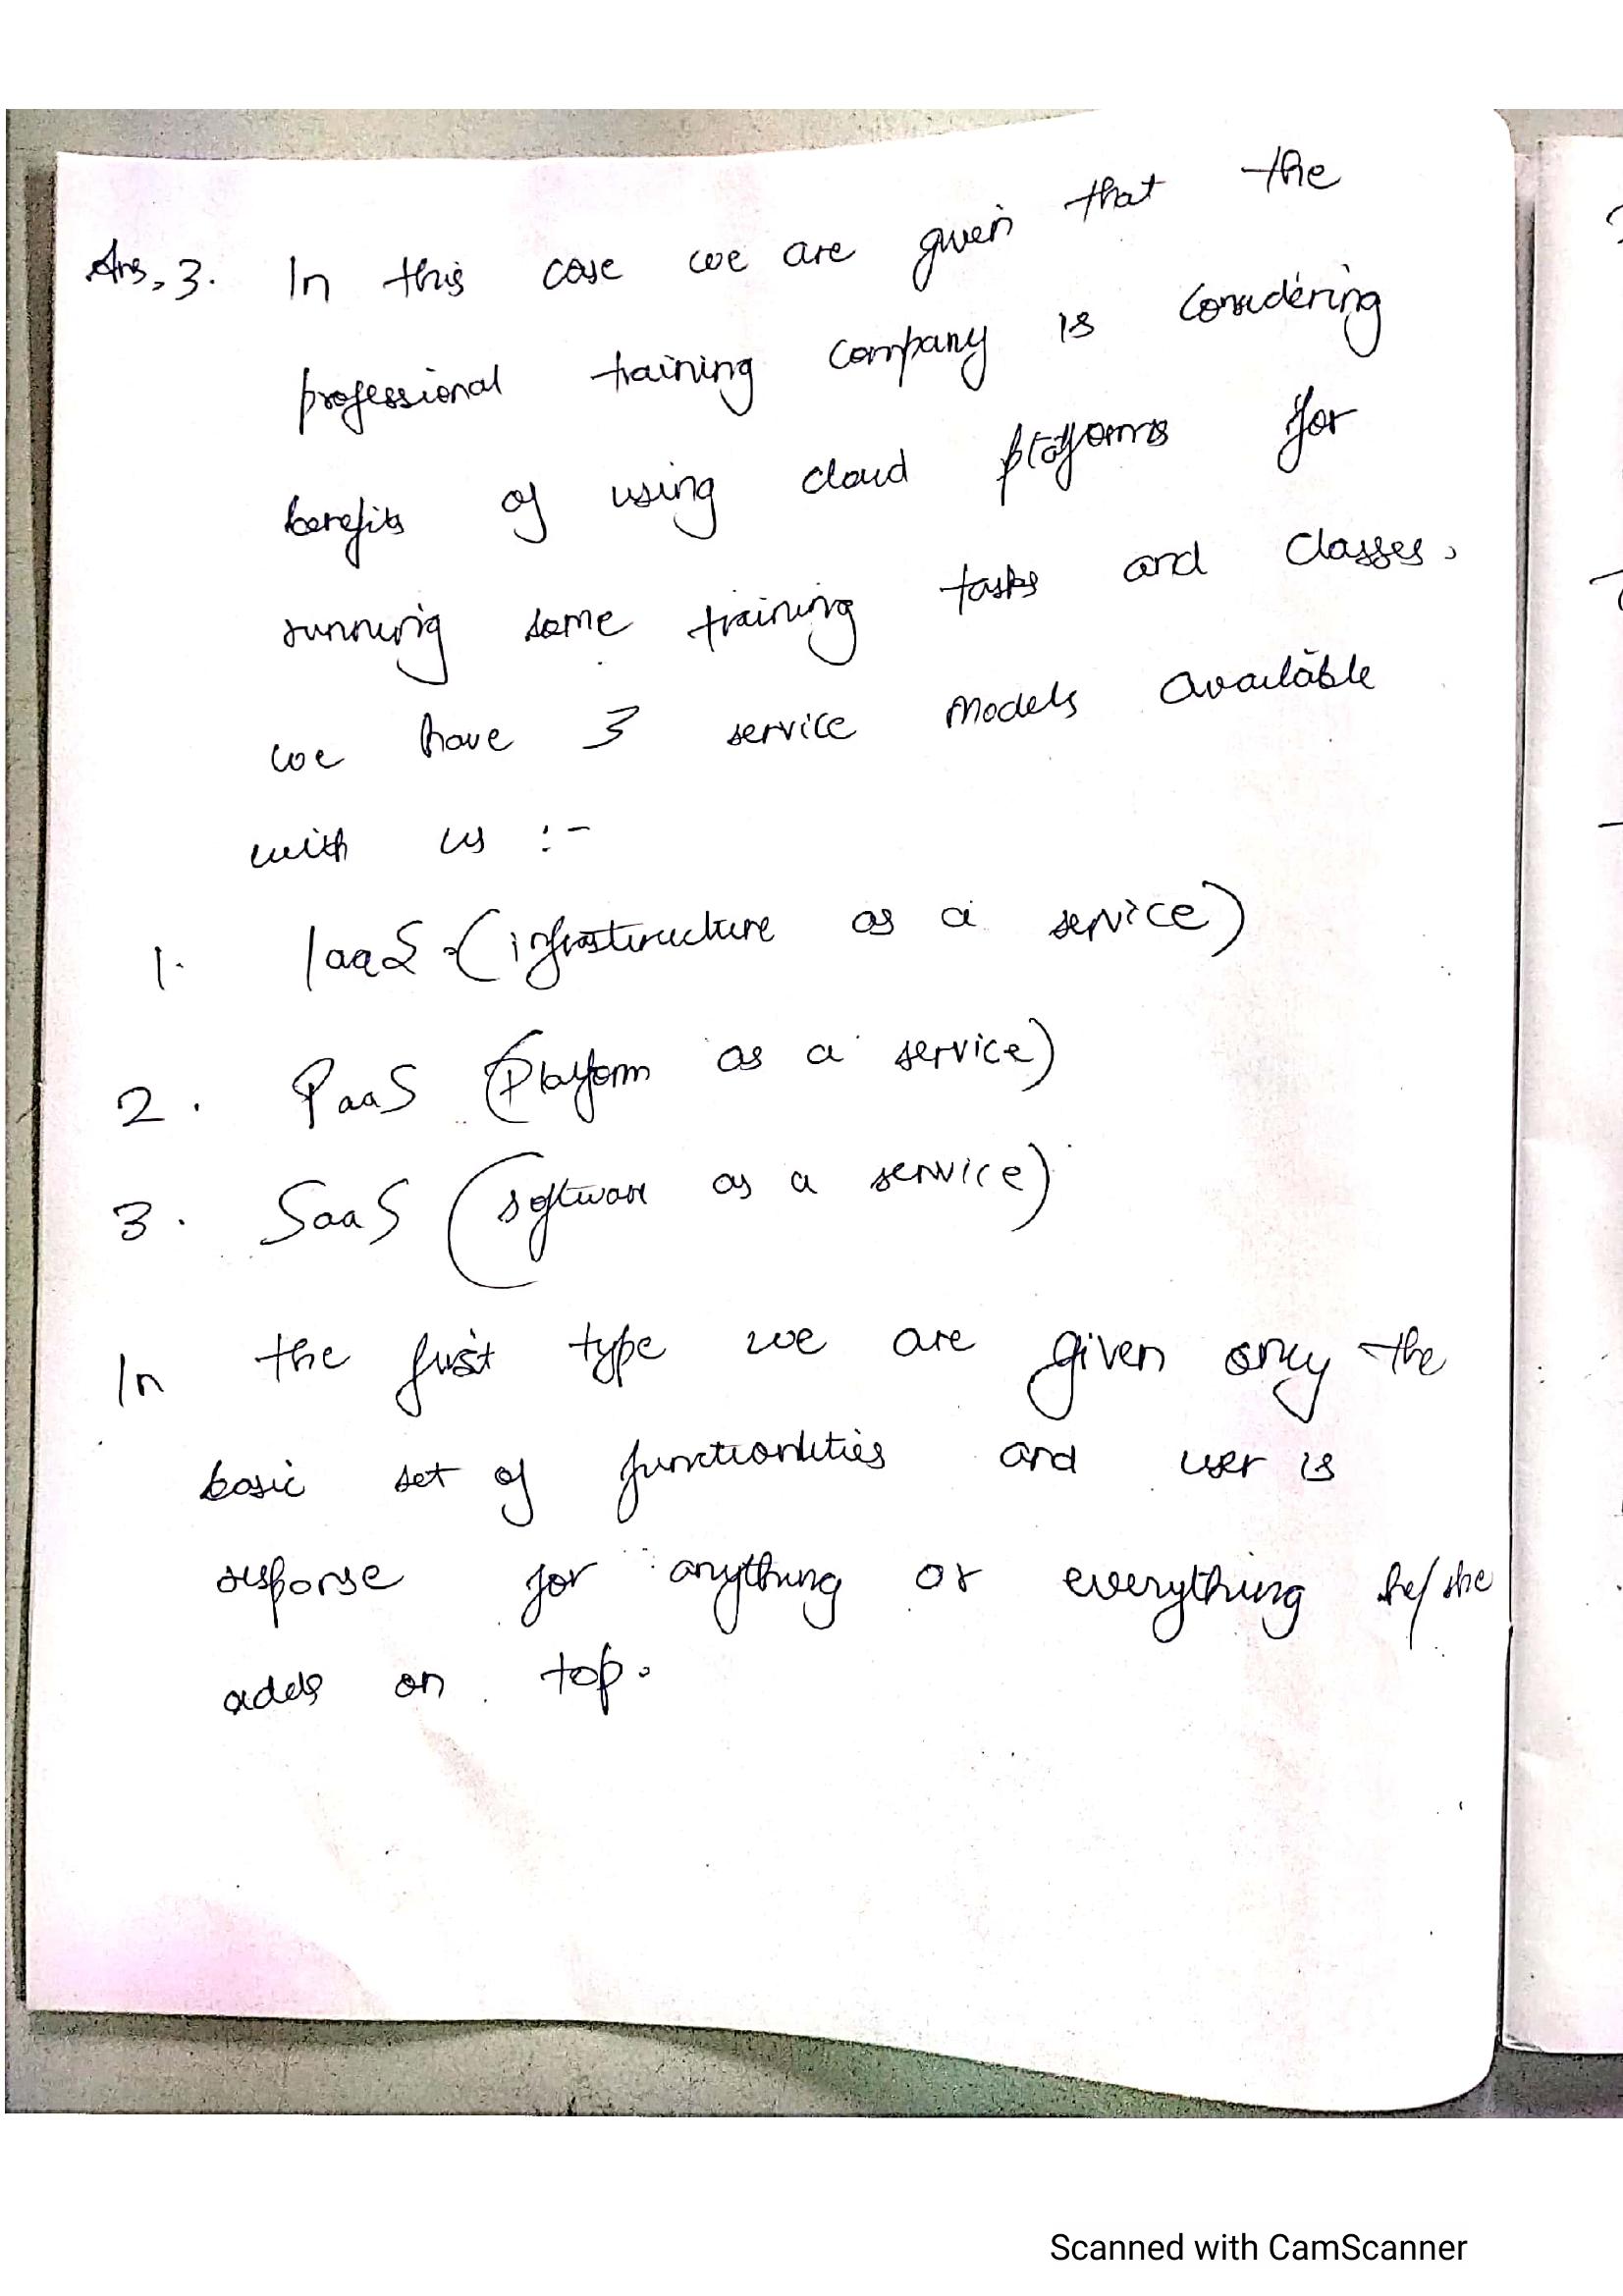 Ans. 3. In this case we are given that the
professional training company is considering
benefits of using cloud platforms for
running some training tasks and classes.
we have 3 service models available
with us :-
1. IaaS (infrastructure as a service)
2. PaaS (Platform as a service)
3. SaaS (software as a service)
In the first type we are given only the
basic set of functionlities and user is
response for anything or everything he/she
adds on top.
Scanned with CamScanner